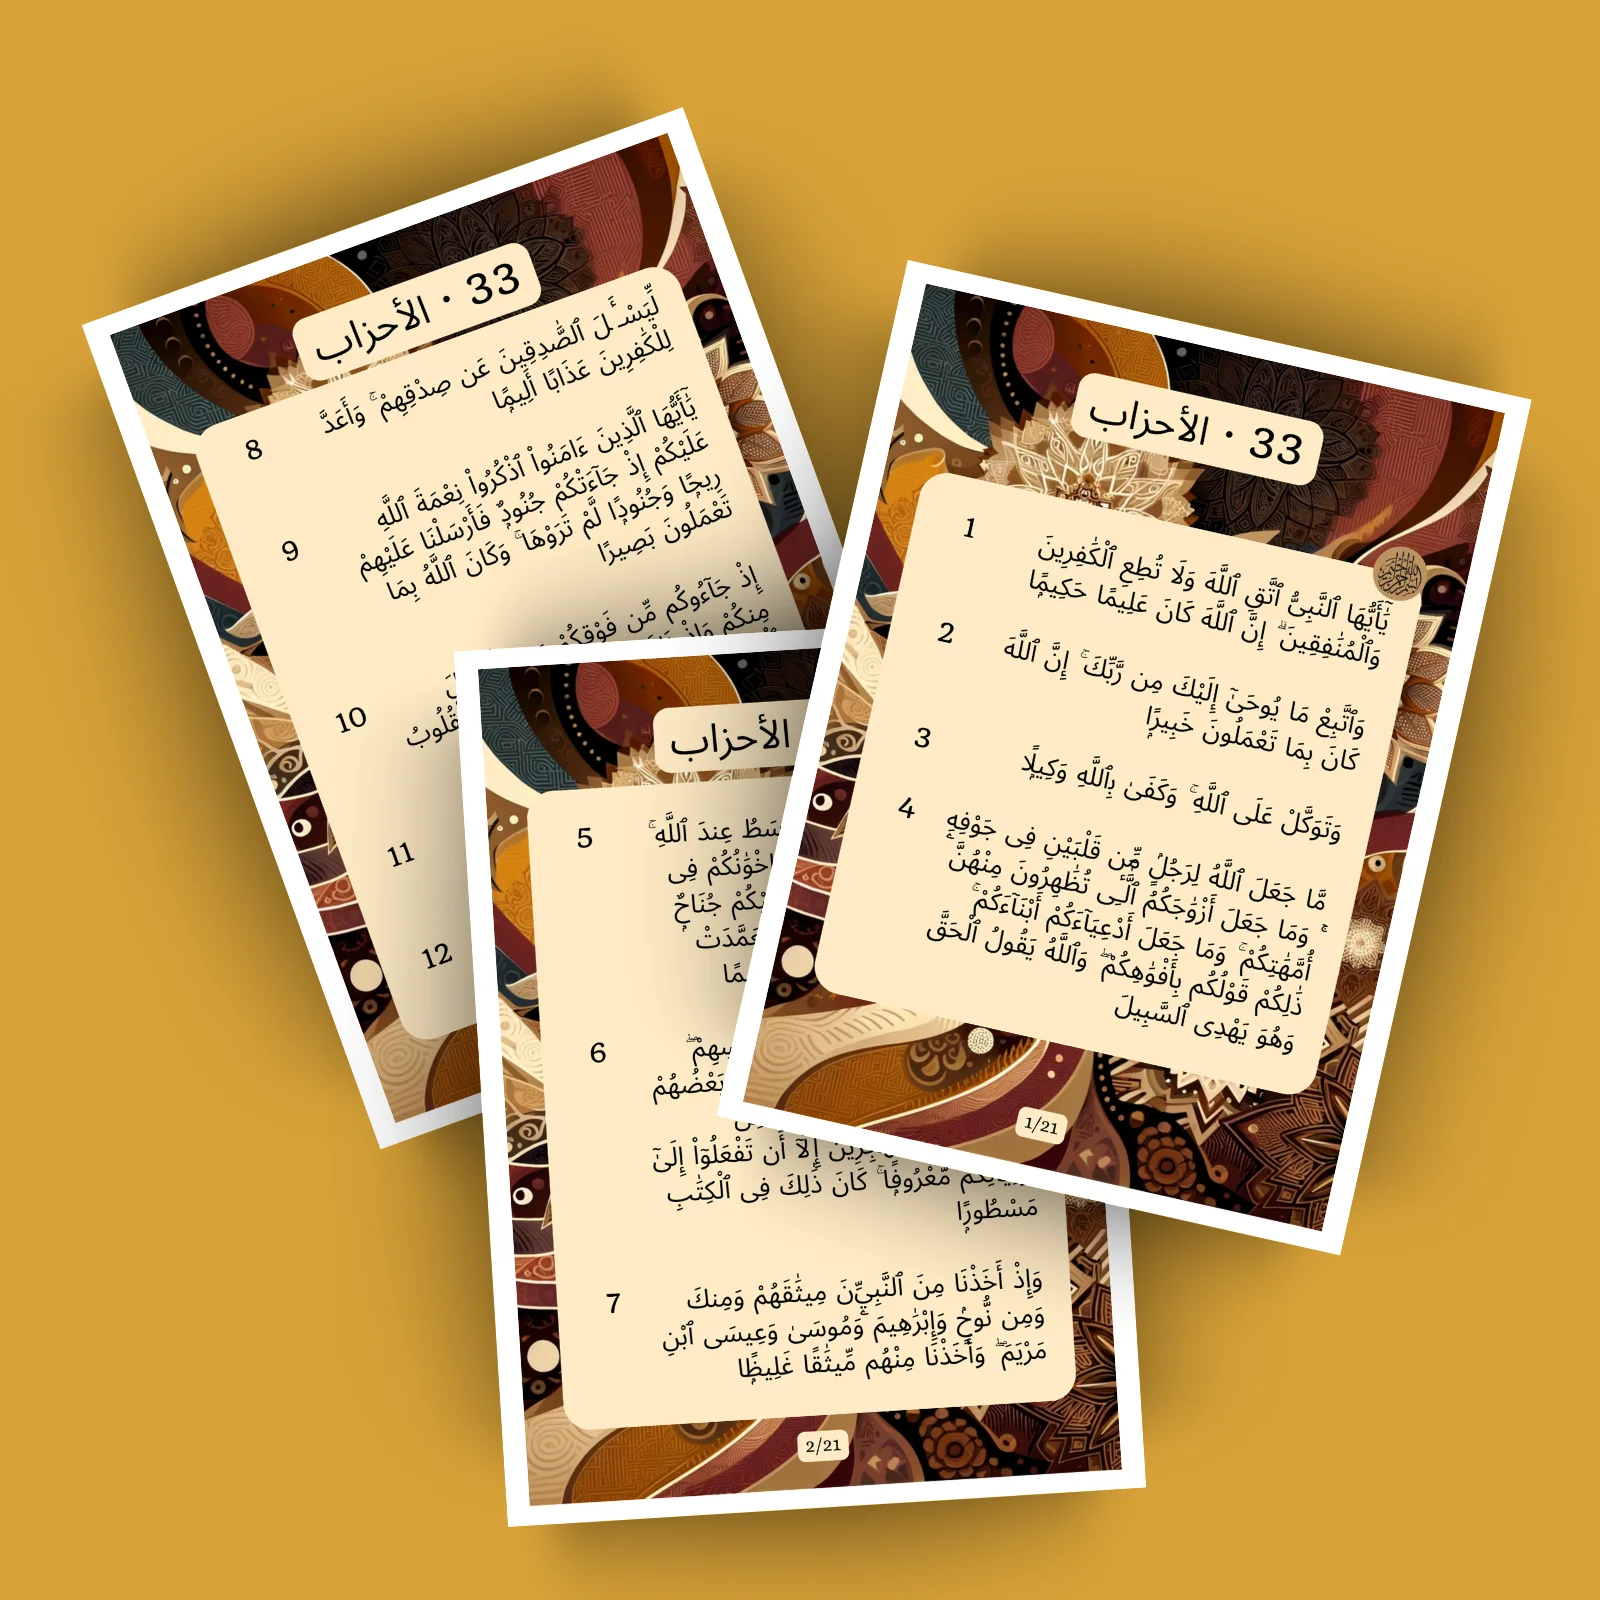 33 · الأحزاب
1
يَٰٓأَيُّهَا ٱلنَّبِىُّ ٱتَّقِ ٱللَّهَ وَلَا تُطِعِ ٱلْكَٰفِرِينَ
وَٱلْمُنَٰفِقِينَ ۗ إِنَّ ٱللَّهَ كَانَ عَلِيمًا حَكِيمًۭا
2
وَٱتَّبِعْ مَا يُوحَىٰٓ إِلَيْكَ مِن رَّبِّكَ ۚ إِنَّ ٱللَّهَ
كَانَ بِمَا تَعْمَلُونَ خَبِيرًۭا
3
وَتَوَكَّلْ عَلَى ٱللَّهِ ۚ وَكَفَىٰ بِٱللَّهِ وَكِيلًۭا
4
مَّا جَعَلَ ٱللَّهُ لِرَجُلٍۢ مِّن قَلْبَيْنِ فِى جَوْفِهِۦ
ۚ وَمَا جَعَلَ أَزْوَٰجَكُمُ ٱلَّٰٓـِٔى تُظَٰهِرُونَ مِنْهُنَّ
أُمَّهَٰتِكُمْ ۚ وَمَا جَعَلَ أَدْعِيَآءَكُمْ أَبْنَآءَكُمْ ۚ
ذَٰلِكُمْ قَوْلُكُم بِأَفْوَٰهِكُمْ ۖ وَٱللَّهُ يَقُولُ ٱلْحَقَّ
وَهُوَ يَهْدِى ٱلسَّبِيلَ
1/21
الأحزاب
5
عِندَ ٱللَّهِ ۚ
فِى
جُنَاحٌۭ
6
بَعْضُهُمْ
إِلَّآ أَن تَفْعَلُوٓا۟ إِلَىٰٓ
مَّعْرُوفًۭا ۚ كَانَ ذَٰلِكَ فِى ٱلْكِتَٰبِ
مَسْطُورًۭا
7
وَإِذْ أَخَذْنَا مِنَ ٱلنَّبِيِّۦنَ مِيثَٰقَهُمْ وَمِنكَ
وَمِن نُّوحٍۢ وَإِبْرَٰهِيمَ وَمُوسَىٰ وَعِيسَى ٱبْنِ
مَرْيَمَ ۖ وَأَخَذْنَا مِنْهُم مِّيثَٰقًا غَلِيظًۭا
2/21
33 · الأحزاب
8
لِّيَسْـَٔلَ ٱلصَّٰدِقِينَ عَن صِدْقِهِمْ ۚ وَأَعَدَّ
لِلْكَٰفِرِينَ عَذَابًا أَلِيمًۭا
9
يَٰٓأَيُّهَا ٱلَّذِينَ ءَامَنُوا۟ ٱذْكُرُوا۟ نِعْمَةَ ٱللَّهِ
عَلَيْكُمْ إِذْ جَآءَتْكُمْ جُنُودٌۭ فَأَرْسَلْنَا عَلَيْهِمْ
رِيحًۭا وَجُنُودًۭا لَّمْ تَرَوْهَا ۚ وَكَانَ ٱللَّهُ بِمَا
تَعْمَلُونَ بَصِيرًا
10
إِذْ جَآءُوكُم مِّن فَوْقِكُمْ
مِنكُمْ وَإِذْ
11
12